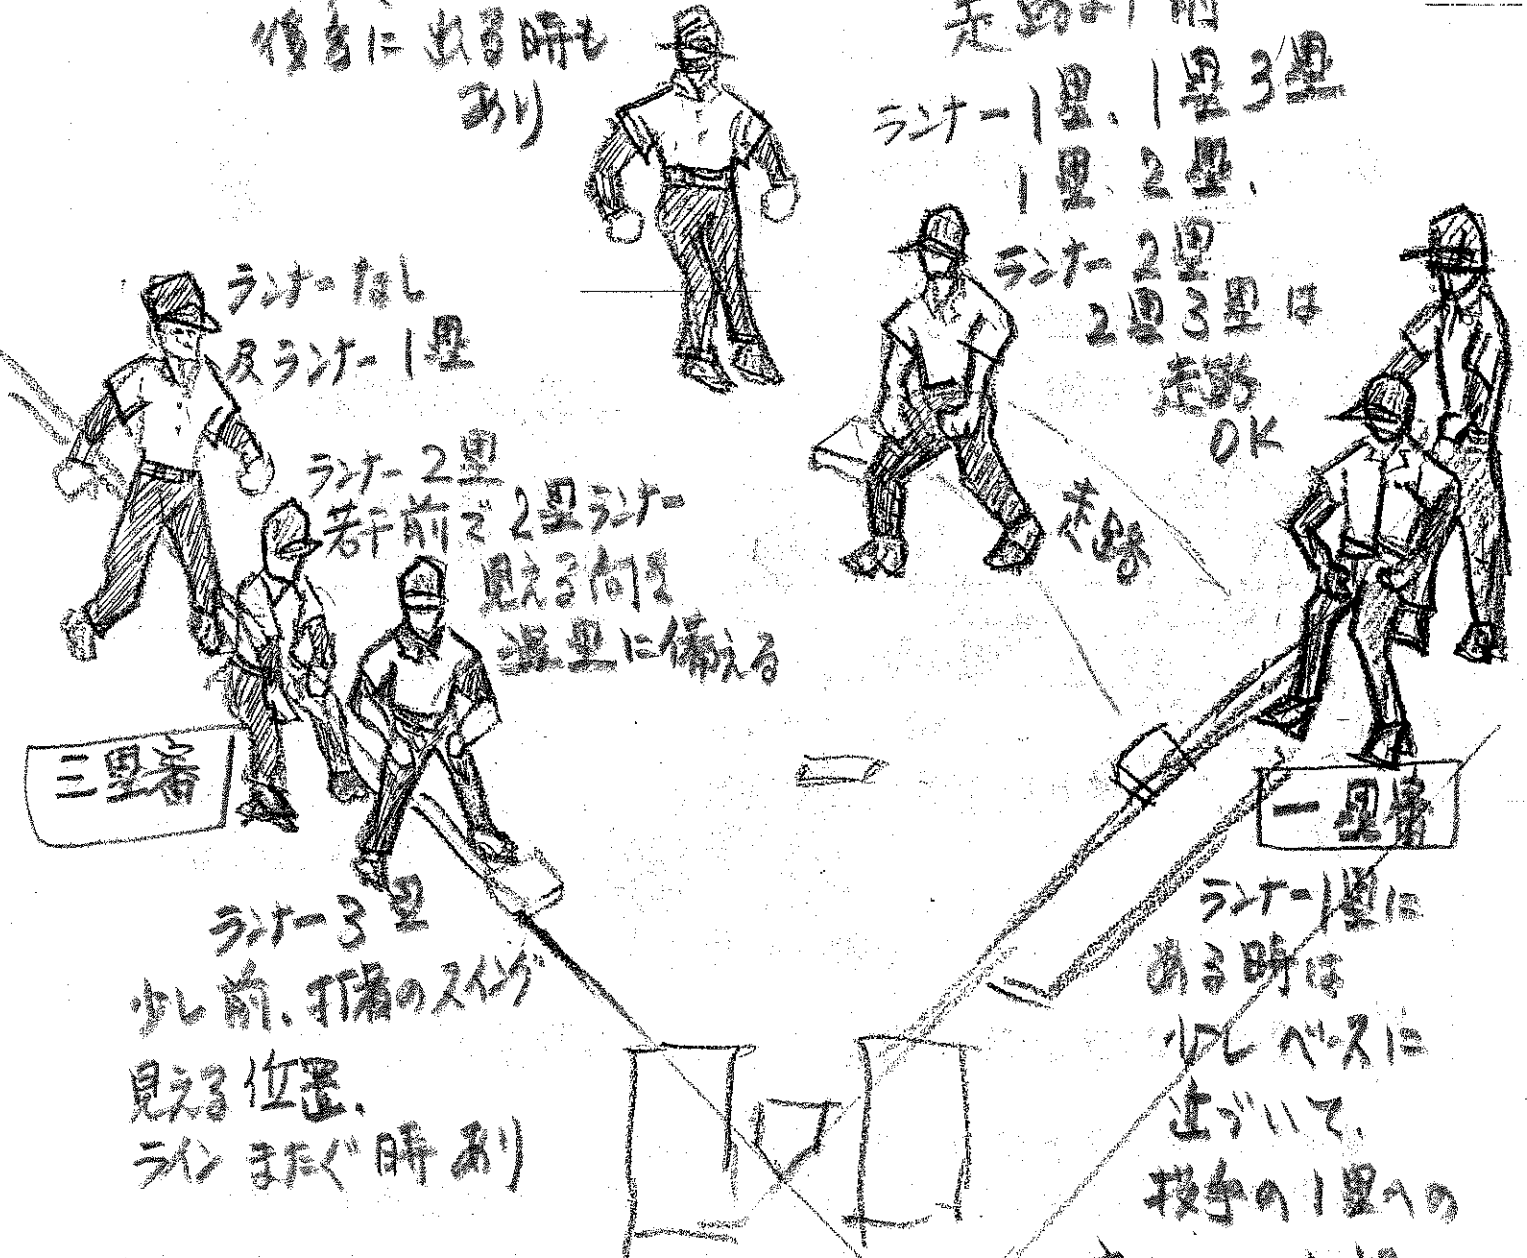 に出る時も
あり
走路より前
ランナー1塁、1塁3塁
1塁、2塁、
ランナー2塁
2塁3塁は
走路
OK
ランナーなし
及ランナー1塁
ランナー2塁
若干前で2塁ランナー
見える向き
進塁に備える
走路
三塁審
一塁審
ランナー3塁
少し前、打者のスイング
見える位置、
ラインまたぐ時あり
ランナー1塁に
ある時は
少しベースに
近づいて、
投手の1塁への